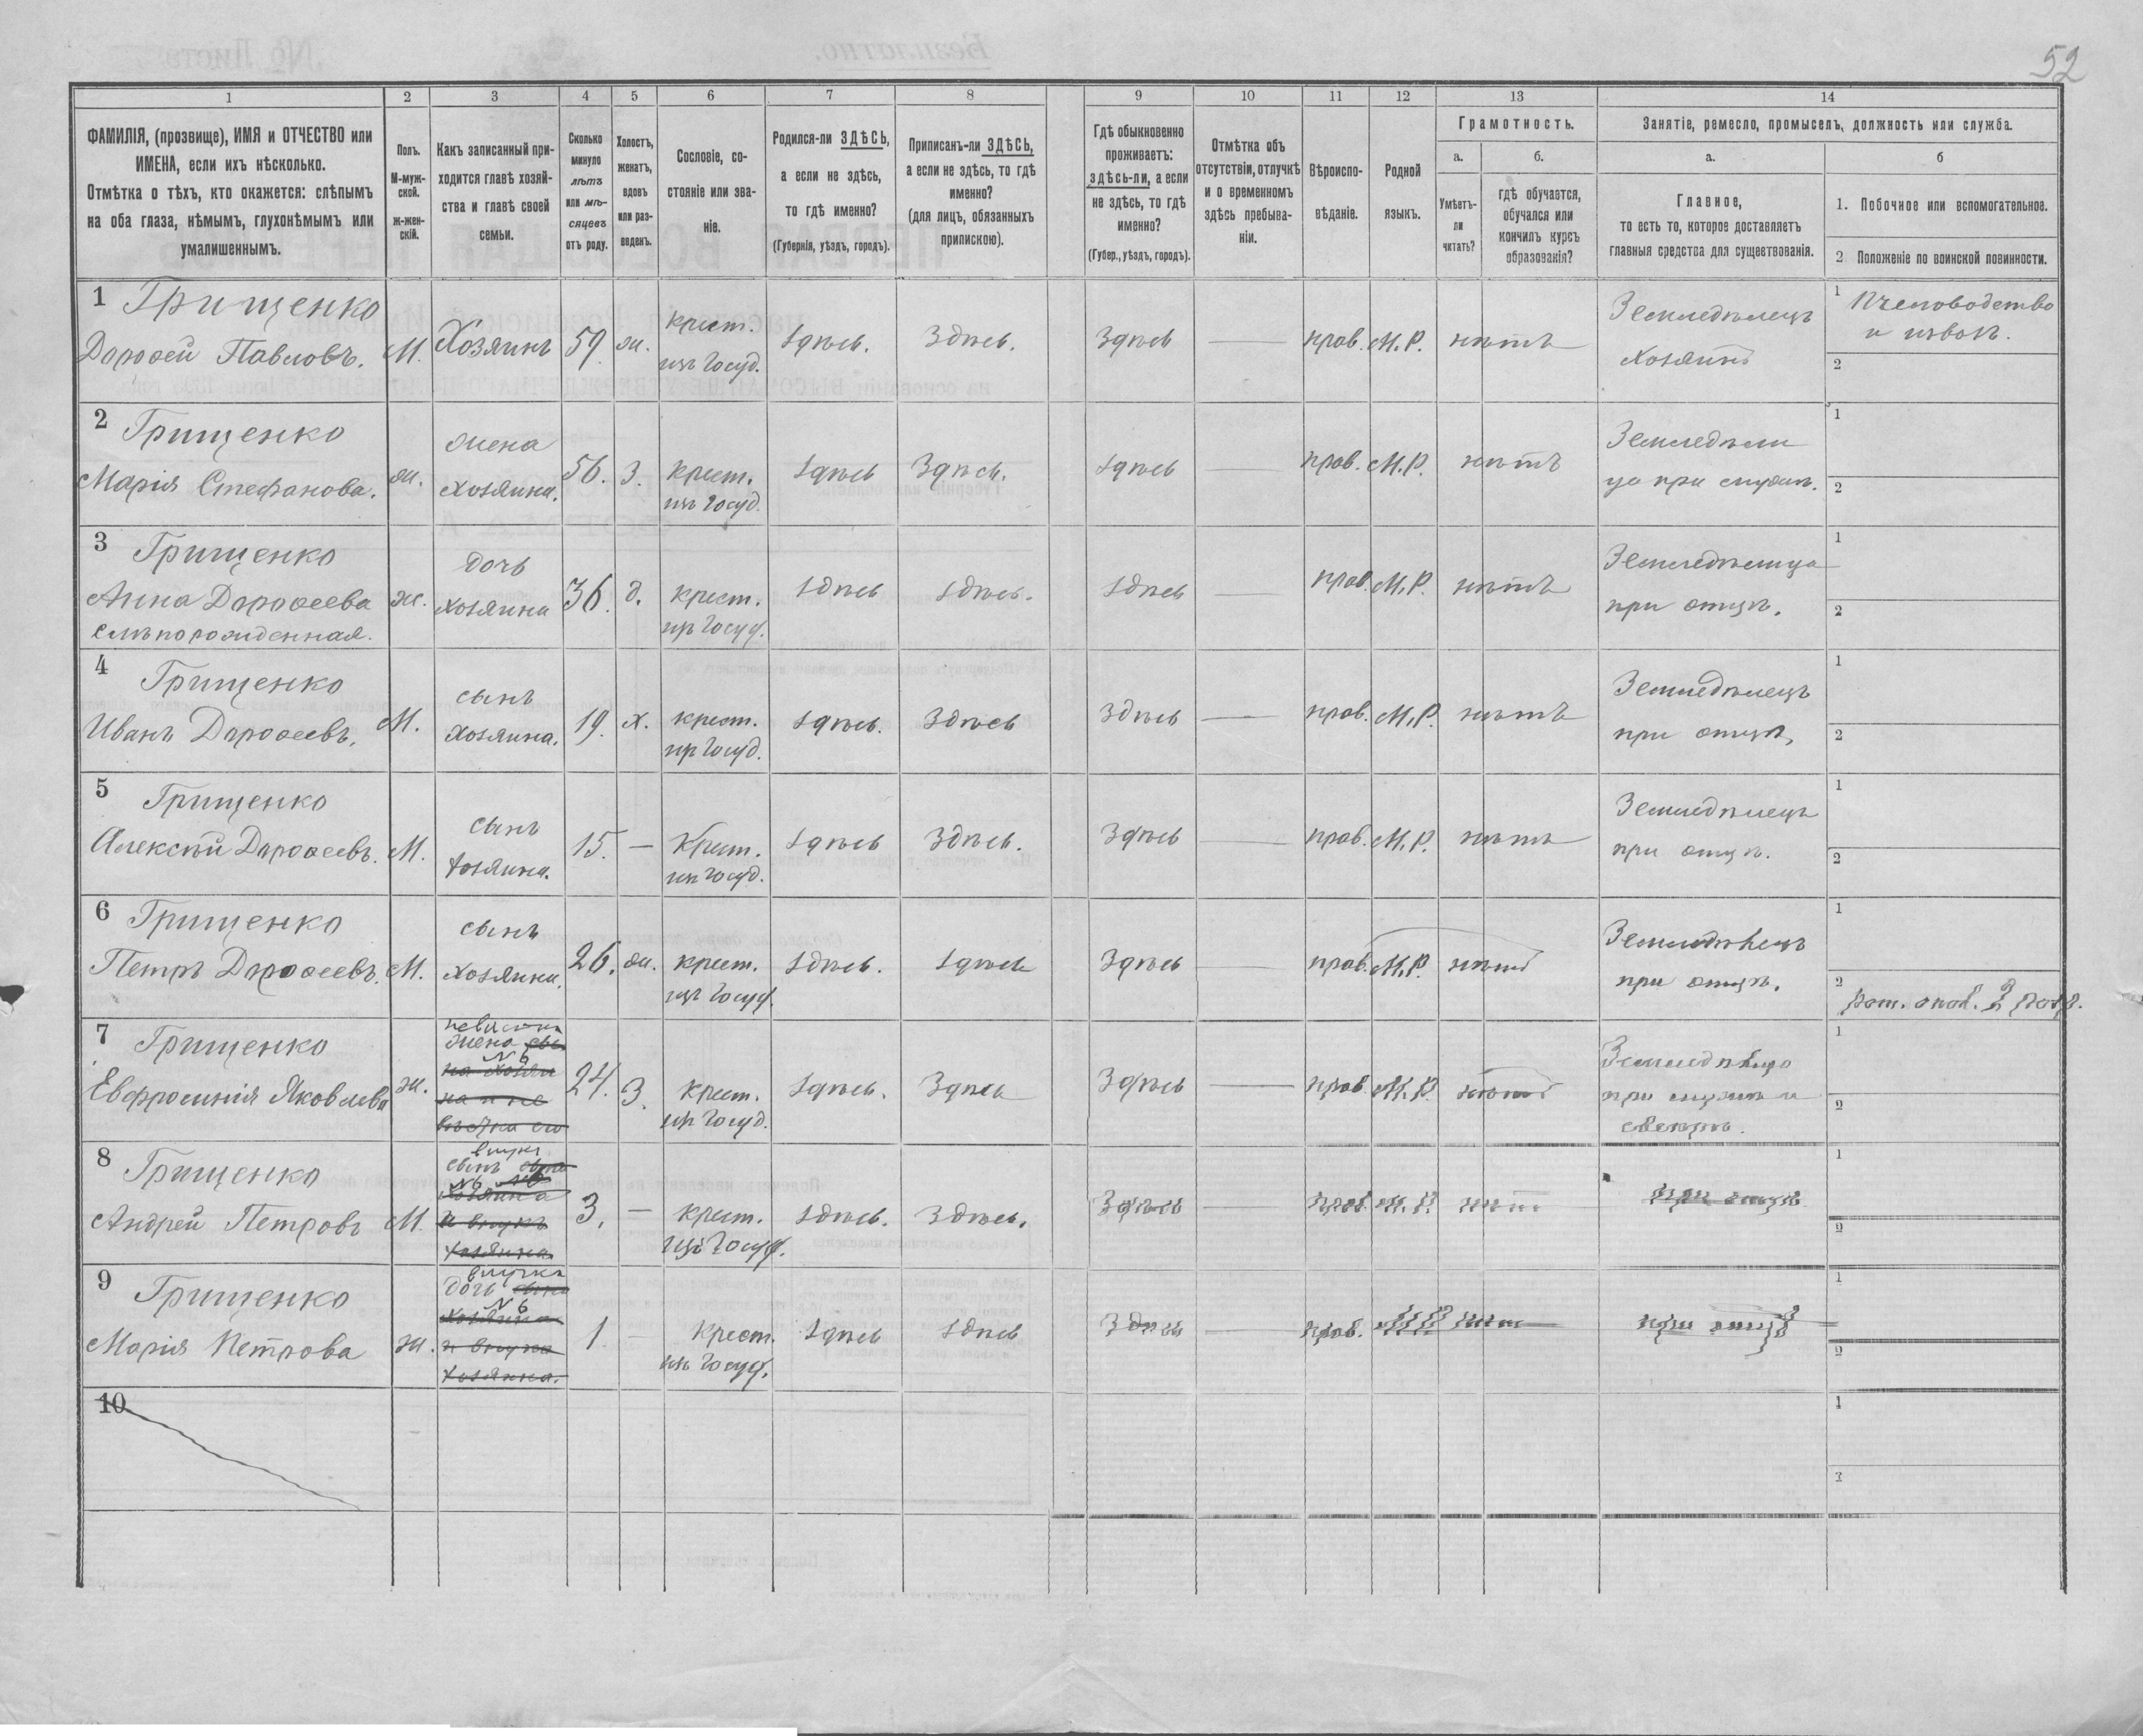 52
1 2 3 4 5 6 7 8 9 10 11 12 13 14
ФАМИЛІЯ, (прозвище), ИМЯ и ОТЧЕСТВО или
ИМЕНА, если ихъ нѣсколько.
Отмѣтка о тѣхъ, кто окажется: слѣпымъ
на оба глаза, нѣмымъ, глухонѣмымъ или
умалишеннымъ.
Полъ.
М-муж-
ской.
ж-жен-
скій.
Какъ записанный при-
ходится главѣ хозяй-
ства и главѣ своей
семьи.
Сколько
минуло
лѣтъ
или мѣ-
сяцевъ
отъ роду.
Холостъ,
женатъ,
вдовъ
или раз-
веденъ.
Сословіе, со-
стояніе или зва-
ніе.
Родился-ли ЗДѢСЬ,
а если не здѣсь,
то гдѣ именно?
(Губернія, уѣздъ, городъ).
Приписанъ-ли ЗДѢСЬ,
а если не здѣсь, то гдѣ
именно?
(для лицъ, обязанныхъ
припискою).
Гдѣ обыкновенно
проживаетъ:
здѣсь-ли, а если
не здѣсь, то гдѣ
именно?
(Губер., уѣздъ, городъ).
Отмѣтка объ
отсутствіи, отлучкѣ
и о временномъ
здѣсь пребыва-
ніи.
Вѣроиспо-
вѣданіе.
Родной
языкъ.
Грамотность.
а. б.
Умѣетъ-
ли
читать?
гдѣ обучается,
обучался или
кончилъ курсъ
образованія?
Занятіе, ремесло, промыселъ, должность или служба.
а. б
Главное,
то есть то, которое доставляетъ
главныя средства для существованія.
1. Побочное или вспомогательное.
2 Положеніе по воинской повинности.
1 Грищенко
Дорофей Павловъ. М. Хозяинъ 59. ж. крест.
изъ Госуд. здѣсь. Здѣсь. Здѣсь — прав. М.Р. нѣтъ Земледѣлецъ
хозяинъ 1 Пчеловодство
и извозъ.
2
2 Грищенко
Марія Стефанова. ж. жена
хозяина. 56. З. крест.
изъ Госуд. здѣсь Здѣсь. здѣсь — прав. М.Р. нѣтъ Земледѣли
ца при мужѣ. 1
2
3 Грищенко
Анна Дорофеева ж. дочь
хозяина 36. д. крест.
изъ Госуд. здѣсь здѣсь. здѣсь прав. М.Р. нѣтъ Земледѣлица
при отцѣ. 1
2
слѣпорожденная.
4 Грищенко
Иванъ Дорофеевъ. М. сынъ
хозяина. 19. х. крест.
изъ Госуд. здѣсь. Здѣсь здѣсь — прав. М.Р. нѣтъ Земледѣлецъ
при отцѣ, 1
2
5 Грищенко
Алексѣй Дорофеевъ. М. сынъ
хозяина. 15. — Крест.
изъ Госуд. здѣсь здѣсь. здѣсь — прав. М.Р. нѣтъ Земледѣлецъ
при отцѣ. 1
2
6 Грищенко
Петръ Дорофеевъ. М. сынъ
хозяина. 26. ж. крест.
изъ Госуд. здѣсь. здѣсь Здѣсь — прав. М.Р. нѣтъ Земледѣлецъ
при отцѣ. 1
2 рат. опол. 2 разр.
7 Грищенко
Евфросинія Яковлева ж. невѣстка
жена сы-
№ 6
на хозяи
на и не
вѣстка его 24. З. крест.
изъ Госуд. здѣсь. Здѣсь Здѣсь — прав М.Р. нѣтъ Земледѣлица
при мужѣ и
свекрѣ. 1
2
8 Грищенко
Андрей Петровъ М. внукъ
сынъ сына
№ 6
хозяина
и внукъ
хозяина 3. — крест.
изъ Госуд. здѣсь. Здѣсь. Здѣсь — прав. М.Р. нѣтъ при отцѣ 1
2
9 Грищенко
Марія Петрова ж. внучка
дочь сына
№ 6
хозяина
и внука
хозяина. 1 — Крест.
изъ Госуд. здѣсь здѣсь Здѣсь — прав. М.Р. нѣтъ при отцѣ 1
2
10 1
2